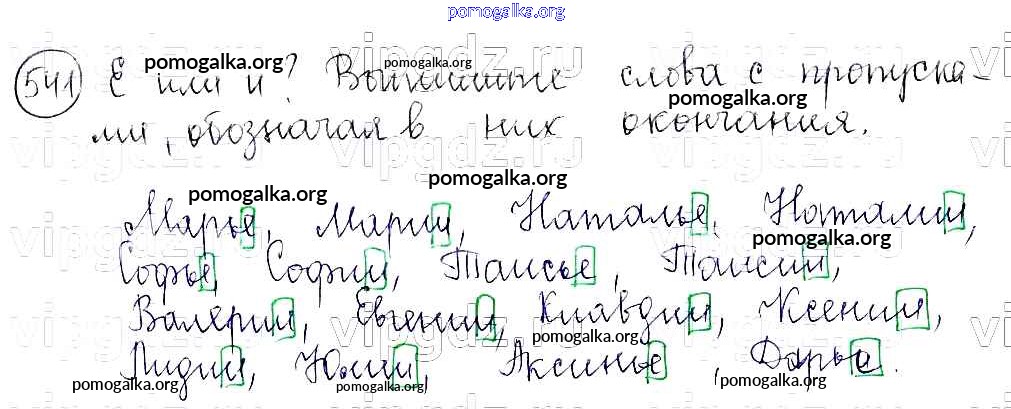 pomogalka.org
541 Е или и? Выпишите слова с пропуска-
pomogalka.org
pomogalka.org
pomogalka.org
ми, обозначая в них окончания.
vipgdz.ru
pomogalka.org
pomogalka.org
Марье, Марии, Наталье, Наталии,
pomogalka.org
Софье, Софии, Таисье, Таисии,
Валерии, Евгении, Клавдии, Ксении,
pomogalka.org
Лидии, Юлии, Аксинье, Дарье.
pomogalka.org
pomogalka.org
pomogalka.org